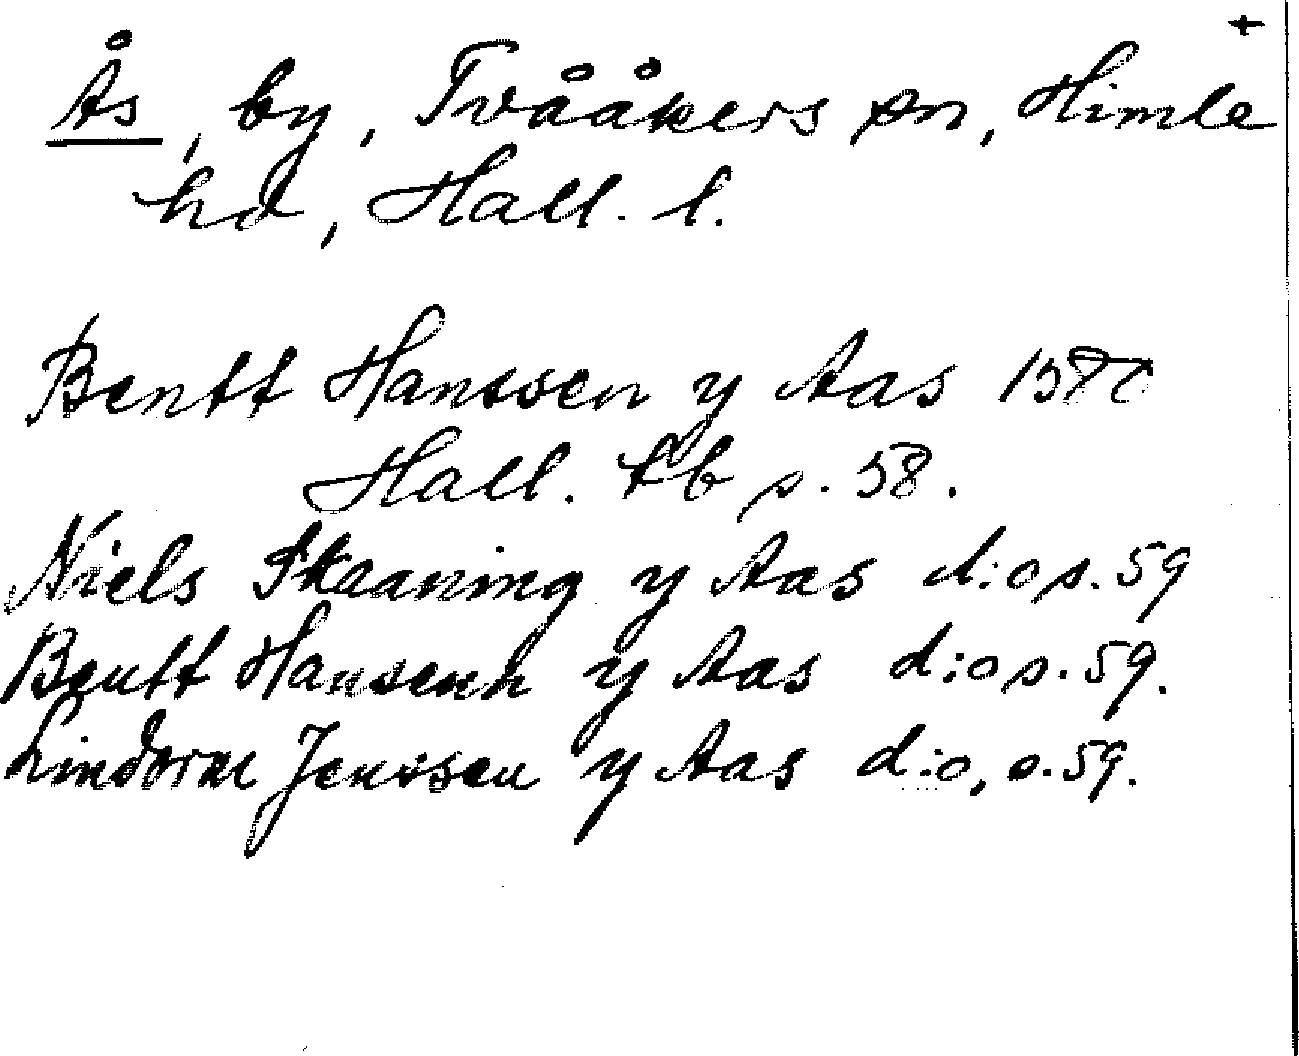 +
Ås, by, Tvååkers sn, Himle
hd, Hall. l.
Bentt Hanssen y Aas 1580
Hall. tb s. 58.
Niels Skaaning y Aas d:o s. 59
Bentt Hansenn y Aas d:o s. 59.
Lindorm Jenssen y Aas d:o, s. 59.